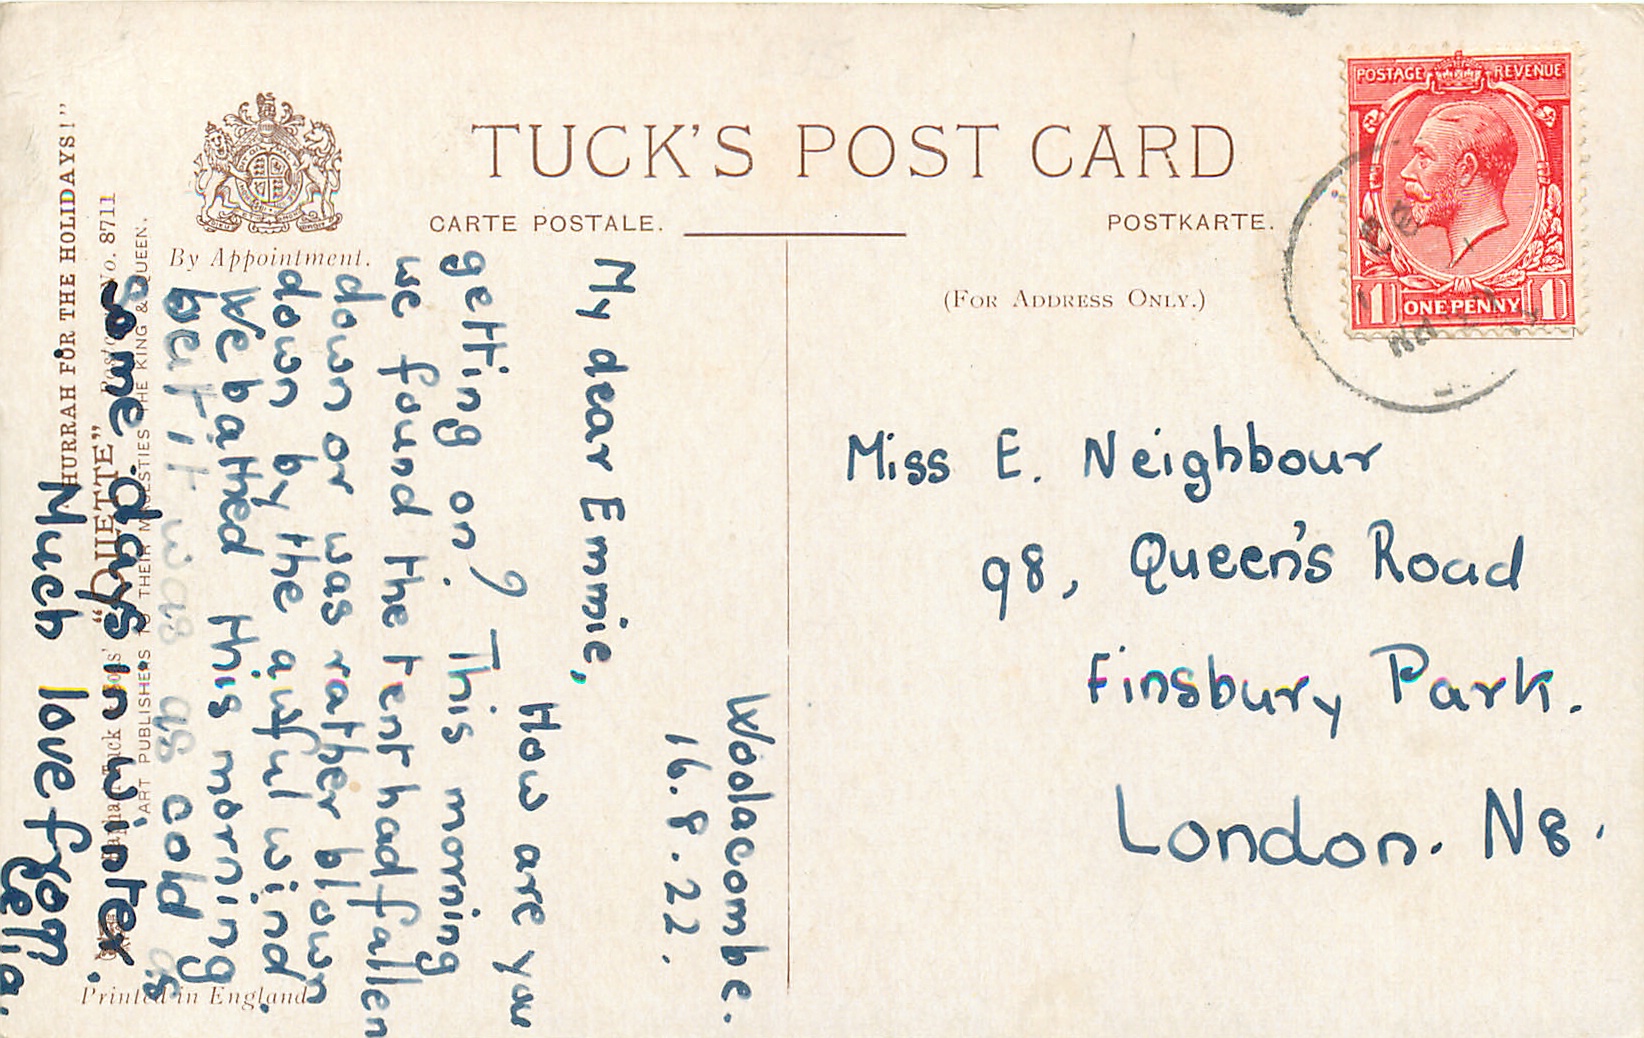 TUCK'S POST CARD
CARTE POSTALE.
POSTKARTE.
(FOR ADDRESS ONLY.)
By Appointment.
POSTAGE REVENUE
1 ONE PENNY 1
Miss E. Neighbour
98, Queen's Road
Finsbury Park.
London. N8.
Woolacombe.
16.8.22.
My dear Emmie,
How are you
getting on? This morning
we found the tent had fallen
down or was rather blown
down by the awful wind.
We bathed this morning
but it was as cold as
some days in winter.
Much love from
Celia.
"HURRAH FOR THE HOLIDAYS!"
Raphael Tuck & Sons' "OILETTE" Postcard No. 8711
ART PUBLISHERS TO THEIR MAJESTIES THE KING & QUEEN.
Printed in England